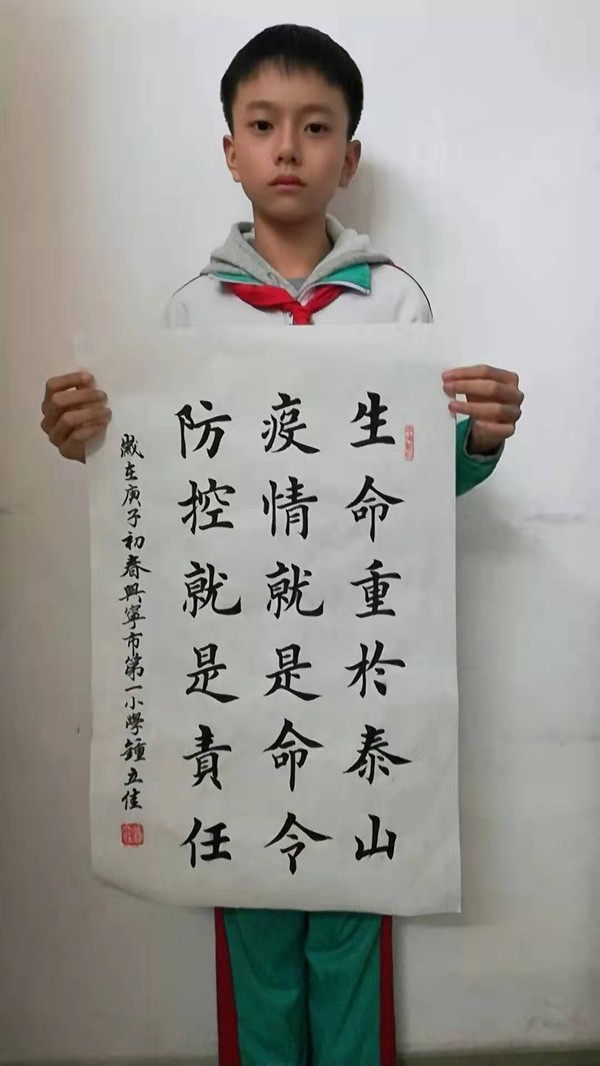 生命重於泰山
疫情就是命令
防控就是責任
歲在庚子初春興寧市第一小學鍾立佳